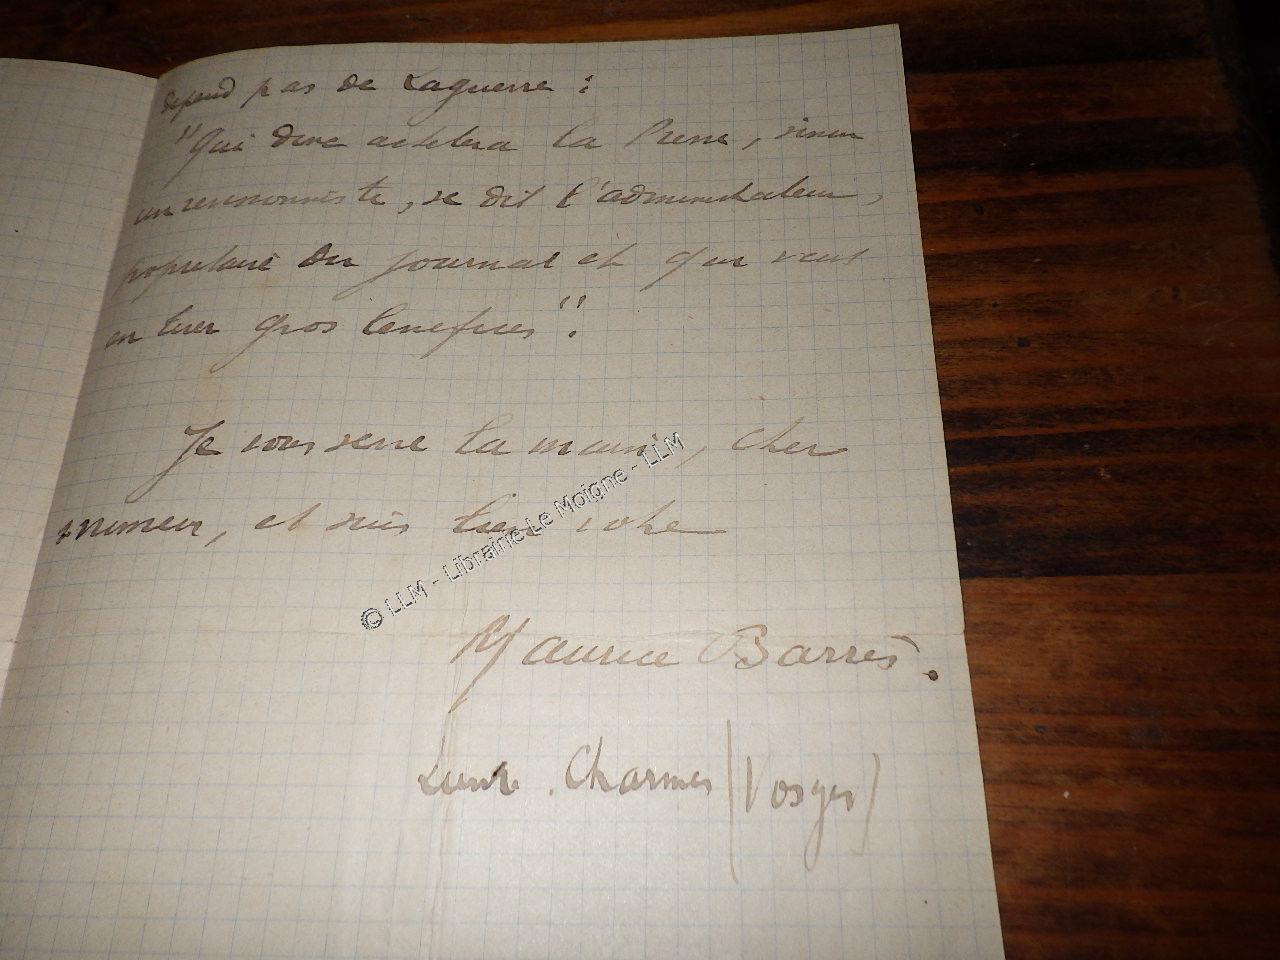 depend pas de Laguerre :
"Qui donc achetera la Presse, sinon
un revisionniste, se dit l'administrateur,
propriétaire du journal et qui veut
en tirer gros benefices".
Je vous serre la main, cher
et suis bien votre
Maurice Barrès.
Charmes (Vosges)
© LLM - Librairie Le Moigne - LLM